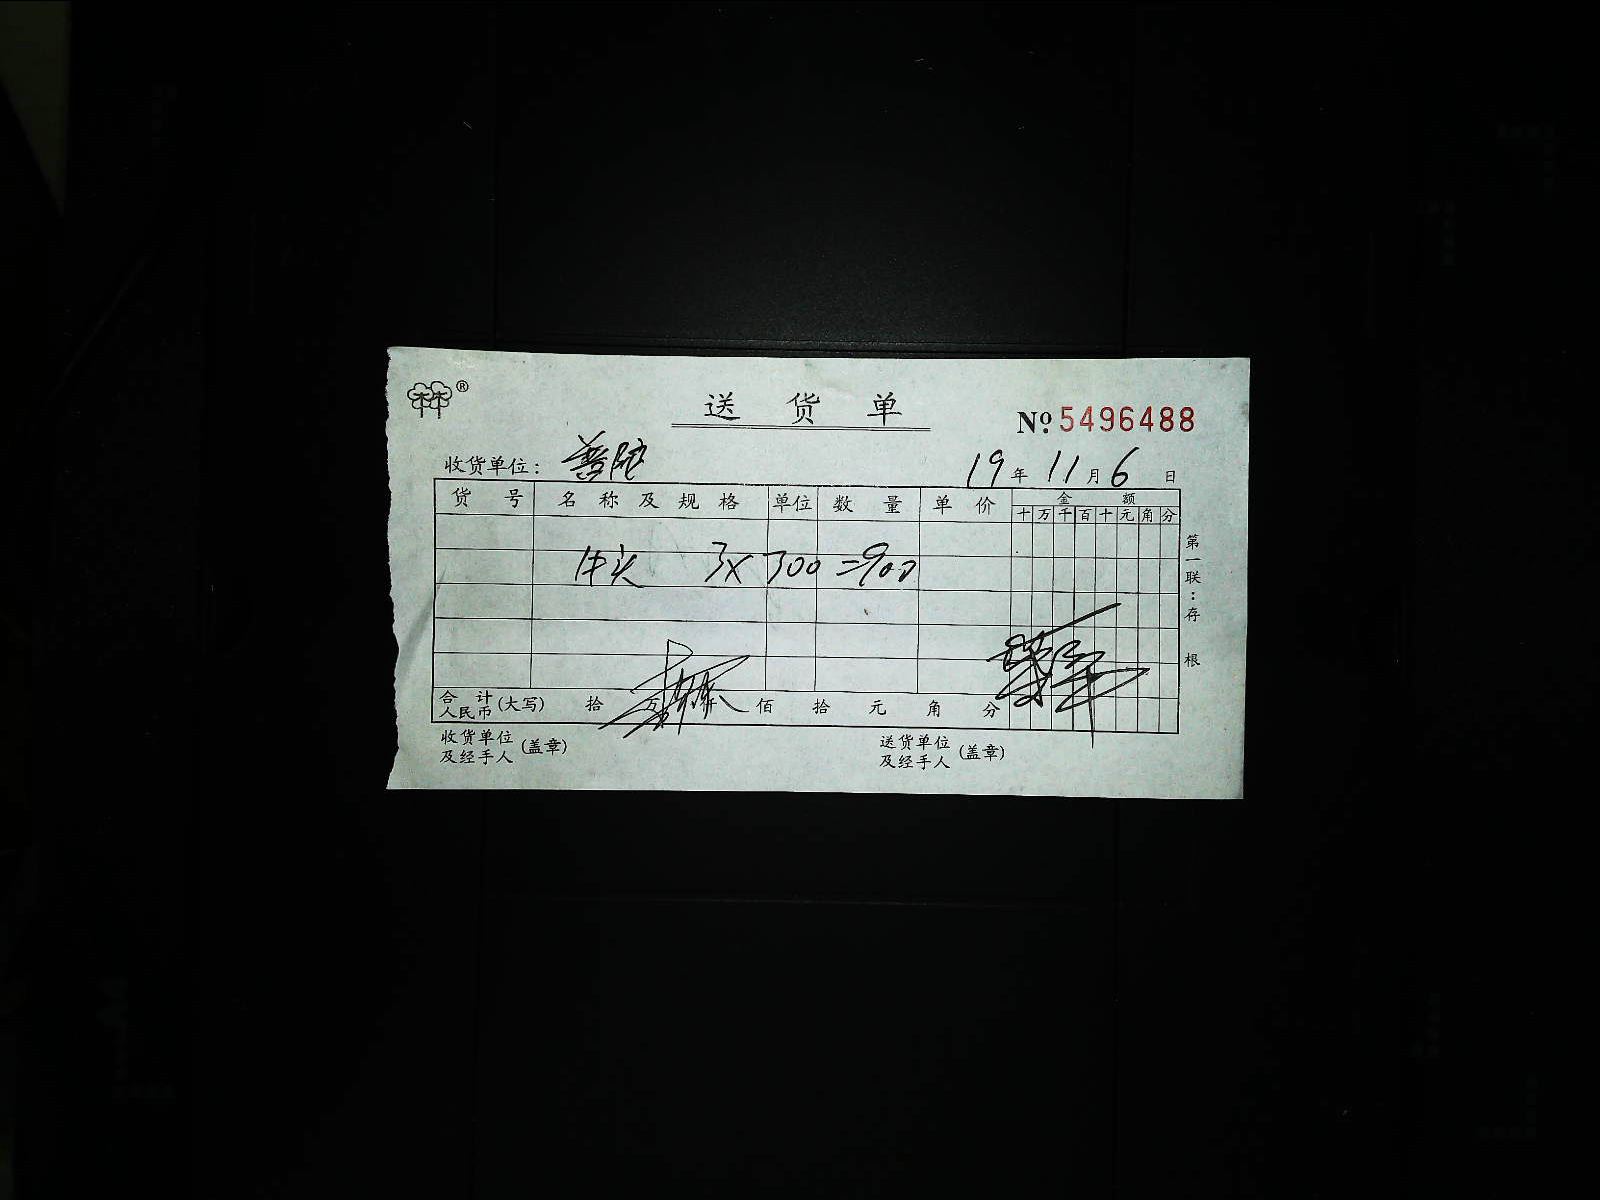 ®
送货单
No. 5496488
收货单位： 普陀
19年11月6日
货号 名称及规格 单位 数量 单价 金额
十 万 千 百 十 元 角 分
牛头 3×300=900
合计人民币(大写) 拾 万 仟 佰 拾 元 角 分
收货单位及经手人(盖章)
送货单位及经手人(盖章)
第一联：存根